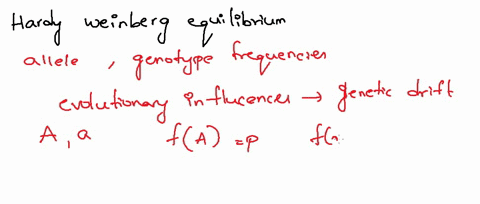 Hardy weinberg equilibrium
allele , genotype frequencies
evolutionary influences → genetic drift
A, a f(A) = p f(